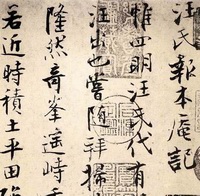 汪氏報本庵記
惟四明汪氏代有
汪出也嘗随拜掃
隆然奇峯遥峙
若近時積土平田